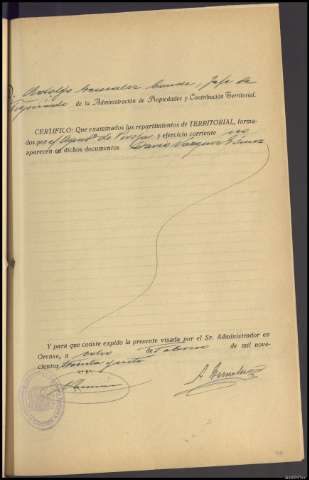 D. Adolfo González Conde, Jefe de
Negociado de la Administración de Propiedades y Contribución Territorial.
CERTIFICO: Que examinados los repartimientos de TERRITORIAL, forma-
dos por el Ayuntº de y ejercicio corriente no
aparece en dichos documentos Dario Vazquez
Y para que conste expido la presente visada por el Sr. Administrador en
Orense, a ocho Febrero de mil nove-
cientos treinta y siete